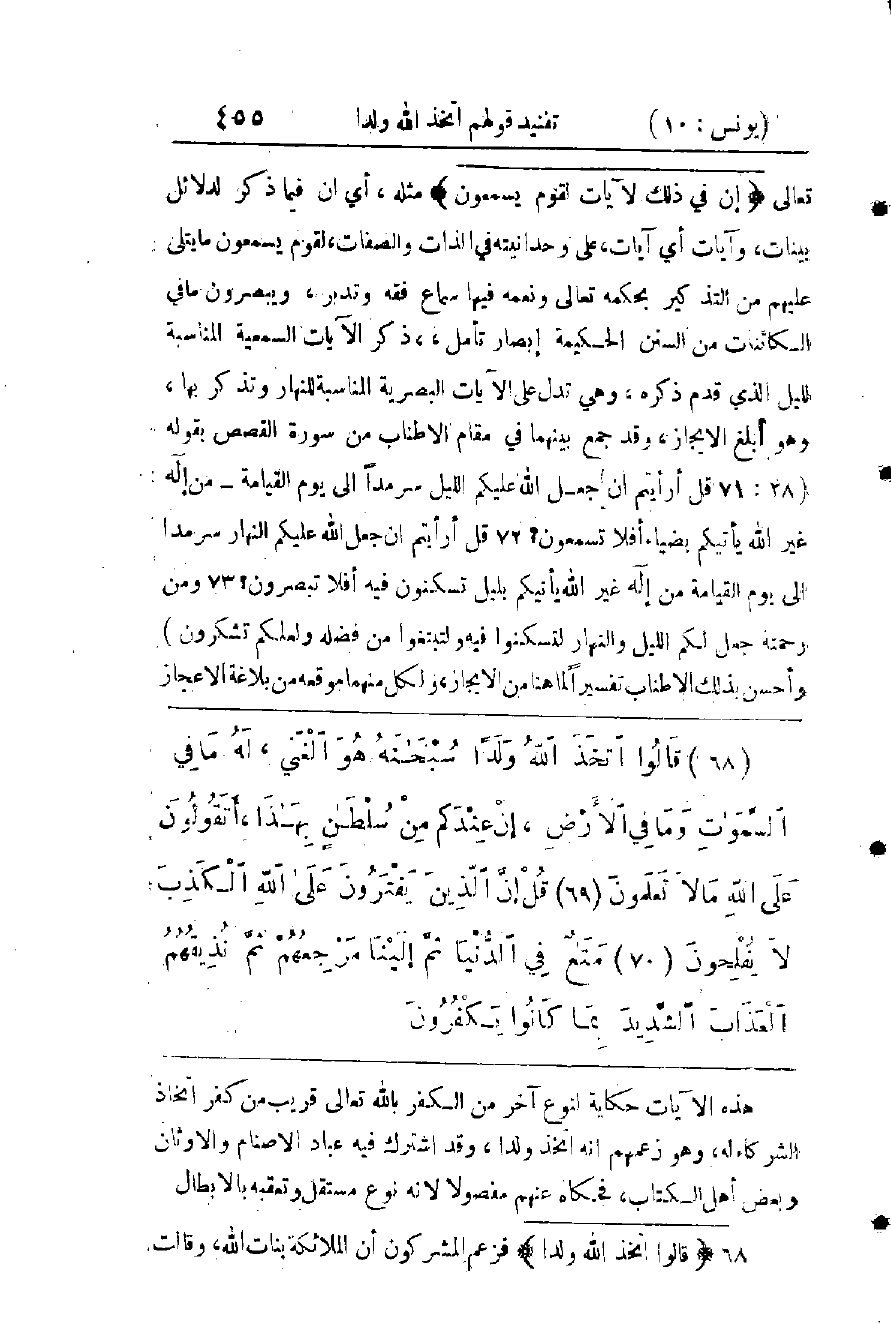 (يونس : ١٠) تفنيد قولهم اتخذ الله ولدا ٤٥٥
تعالى ﴿ إن في ذلك لآيات لقوم يسمعون ﴾ مثله ، أي ان فيما ذكر لدلائل
بينات، وآيات أي آيات، على وحدانيته في الذات والصفات، لقوم يسمعون ما يتلى
عليهم من التذكير بحكمه تعالى ونعمه فيها سماع فقه وتدبر ، ويبصرون ما في
الكائنات من السنن الحكيمة إبصار تأمل ، ، ذكر الآيات السمعية المناسبة
لليل الذي قدم ذكره ، وهي تدل على الآيات البصرية المناسبة للنهار وتذكر بها ،
وهو أبلغ الايجاز ، وقد جمع بينهما في مقام الاطناب من سورة القصص بقوله
(٢٨ : ٧١ قل أرأيتم ان جعل الله عليكم الليل سرمداً الى يوم القيامة ـ من إلَه
غير الله يأتيكم بضياء أفلا تسمعون؟ ٧٢ قل أرأيتم ان جعل الله عليكم النهار سرمدا
الى يوم القيامة من إلَه غير الله يأتيكم بليل تسكنون فيه أفلا تبصرون؟ ٧٣ ومن
رحمته جعل لكم الليل والنهار لتسكنوا فيه ولتبتغوا من فضله ولعلكم تشكرون )
وأحسن بذلك الاطناب تفسيراً لما هنا من الايجاز، ولكل منهما موقعه من بلاغة الاعجاز
(٦٨) قَالُوا ٱتَّخَذَ ٱللهُ وَلَدًا سُبْحَٰنَهُ هُوَ ٱلْغَنِي ، لَهُ مَا فِي
ٱلسَّمَوَٰتِ وَمَا فِي ٱلأَرْضِ ، إِنْ عِنْدَكُم مِنْ سُلْطَٰنٍ بِهَٰذَا ، أَتَقُولُونَ
عَلَى اللهِ مَالاَ تَعْلَمُونَ (٦٩) قُلْ إِنَّ ٱلَّذِينَ يَفْتَرُونَ عَلَى ٱللهِ ٱلْكَذِبَ
لاَ يُفْلِحُونَ (٧٠) مَتَٰعٌ فِي ٱلدُّنْيَا ثُمَّ إِلَيْنَا مَرْجِعُهُمْ ثُمَّ نُذِيقُهُمُ
ٱلْعَذَابَ ٱلشَّدِيدَ بِمَا كَانُوا يَكْفُرُونَ
هذه الآيات حكاية لنوع آخر من الكفر بالله تعالى قريب من كفر اتخاذ
الشركاء له، وهو زعمهم انه اتخذ ولدا ، وقد اشترك فيه عباد الاصنام والاوثان
وبعض أهل الكتاب، فحكاه عنهم مفصولا لانه نوع مستقل وتعقبه بالابطال
٦٨ ﴿ قالوا اتخذ الله ولدا ﴾ فزعم المشركون أن الملائكة بنات الله، وقالت